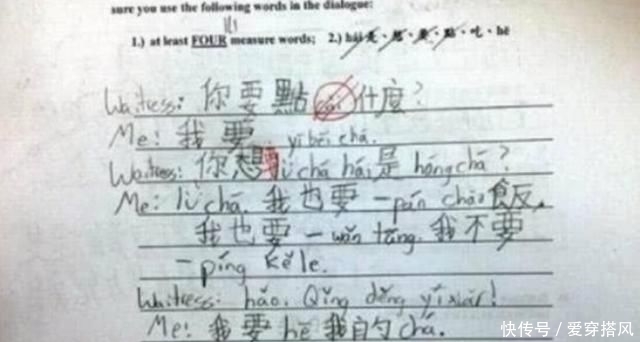 sure you use the following words in the dialogue:
1.) at least FOUR measure words; 2.) hái 是、想、要、點、吃、hē
Waitress: 你要點 cài 什麼?
Me: 我要 yì bēi chá.
Waitress: 你想要 lǜ chá hái 是 hóng chá?
Me: lǜ chá. 我也要一 pán chǎo 飯,
我也要一 wǎn tāng. 我不要
一 píng kě lè.
Waitress: hǎo. Qǐng děng yí xiàr!
Me: 我要 hē 我的 chá.
快传号/爱穿搭风